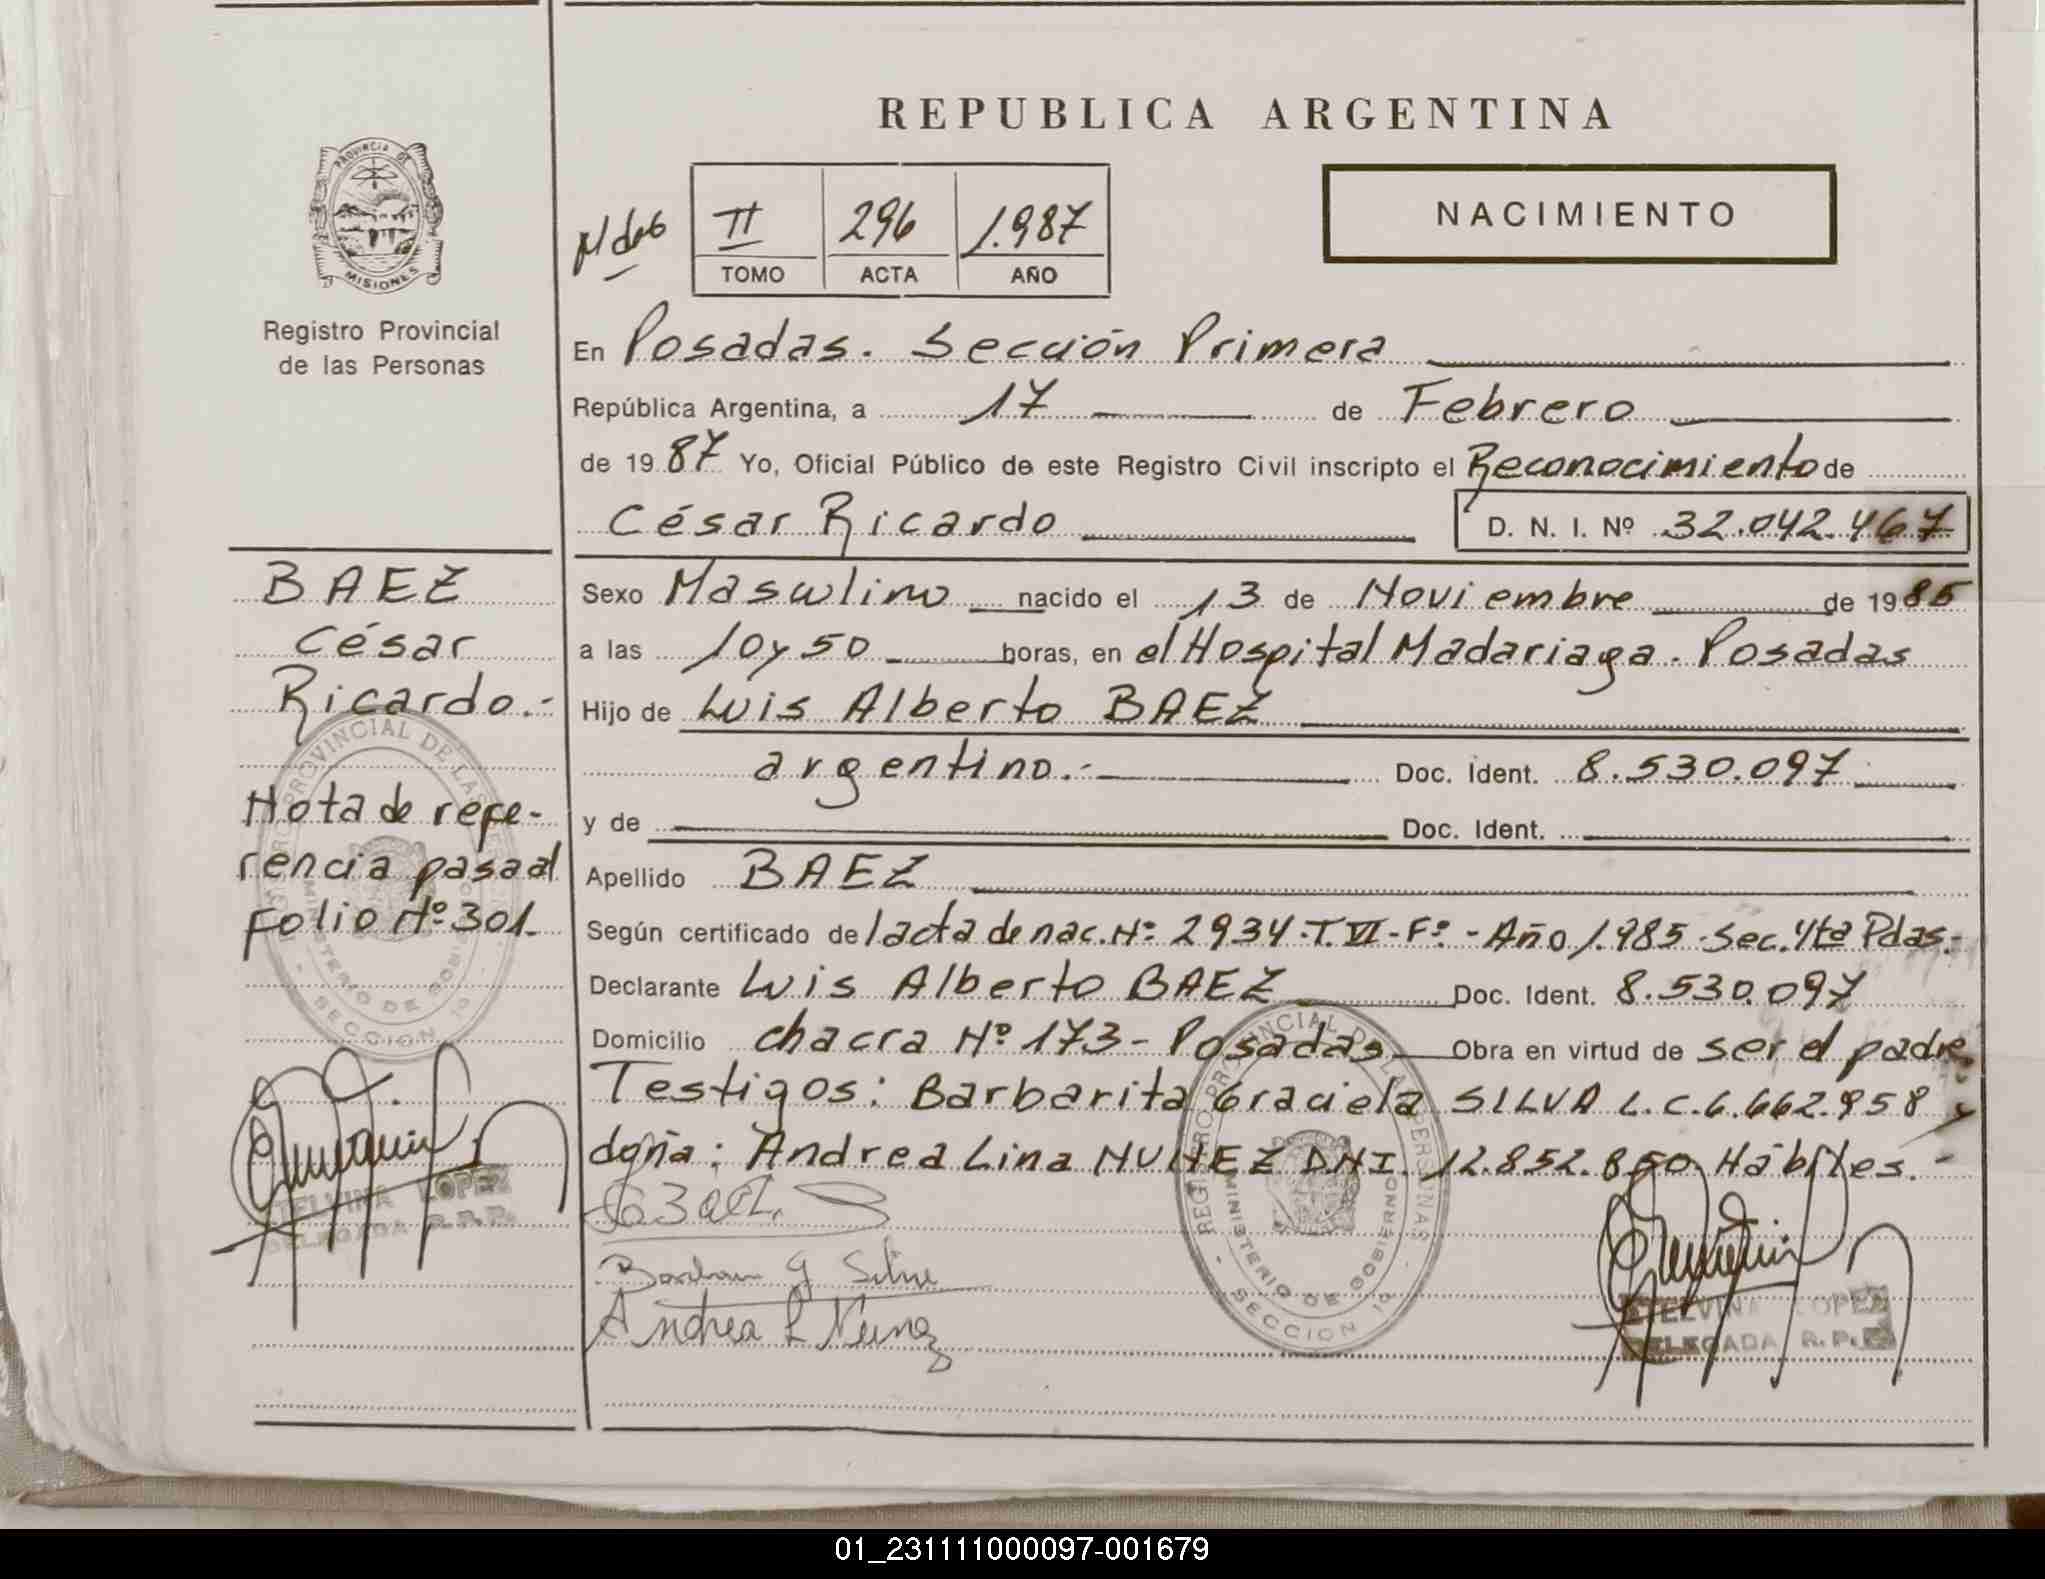 REPUBLICA ARGENTINA
PROVINCIA DE MISIONES
Registro Provincial
de las Personas
II 296 1.987
TOMO ACTA AÑO
NACIMIENTO
En Posadas. Sección Primera
República Argentina, a 17 de Febrero
de 1987 Yo, Oficial Público de este Registro Civil inscripto el Reconocimiento de
César Ricardo D. N. I. Nº 32.042.467
Sexo Masculino nacido el 13 de Noviembre de 1985
a las 10 y 50 horas, en el Hospital Madariaga. Posadas
Hijo de Luis Alberto BAEZ
argentino.- Doc. Ident. 8.530.097
y de Doc. Ident.
Apellido BAEZ
Según certificado de l acta de nac. Nº 2934. T. VI - Fº - Año 1.985. Sec. 4ta Pdas.-
Declarante Luis Alberto BAEZ Doc. Ident. 8.530.097
Domicilio chacra Nº 173 - Posadas Obra en virtud de ser el padre
Testigos: Barbarita Graciela SILVA L.C. 6.662.958 y
doña: Andrea Lina NUÑEZ DNI. 12.852.850. Hábiles.-
Andrea L Nuñez
BAEZ
César
Ricardo.-
Nota de refe-
rencia pasa al
Folio Nº 301.
REGISTRO PROVINCIAL DE LAS PERSONAS
MINISTERIO DE GOBIERNO
- SECCION 1º -
ETELVINA LOPEZ
DELEGADA R.P.P.
REGISTRO PROVINCIAL DE LAS PERSONAS
MINISTERIO DE GOBIERNO
- SECCION 1º -
ETELVINA LOPEZ
DELEGADA R.P.P.
01_231111000097-001679